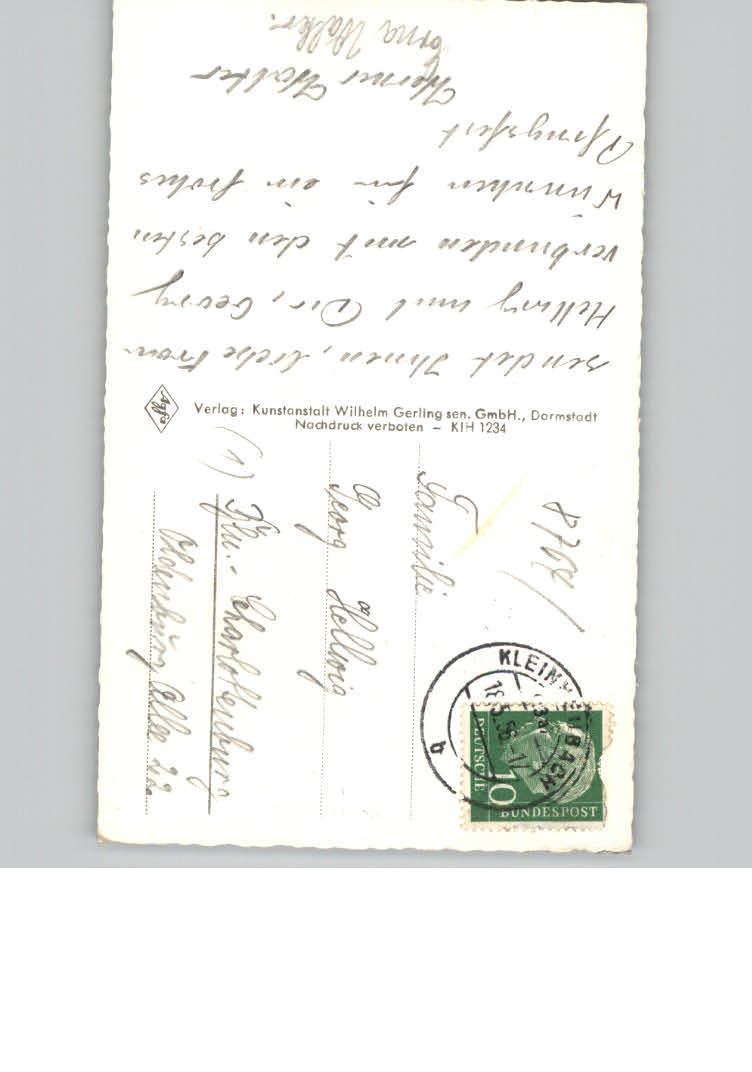 sendet Ihnen, liebe Frau
Hellwig und Dir, Georg
verbunden mit den besten
Wünschen für ein frohes
Pfingstfest
Werner Walter
Erna Walter.
Verlag: Kunstanstalt Wilhelm Gerling sen. GmbH., Darmstadt
Nachdruck verboten – KIH 1234
Agfa
8768/
Familie
Georg Hellwig
(1) Bln.- Charlottenburg
Oldenburg Allee
KLEINHEUBACH
16.5.56.-17
b
DEUTSCHE
BUNDESPOST
10